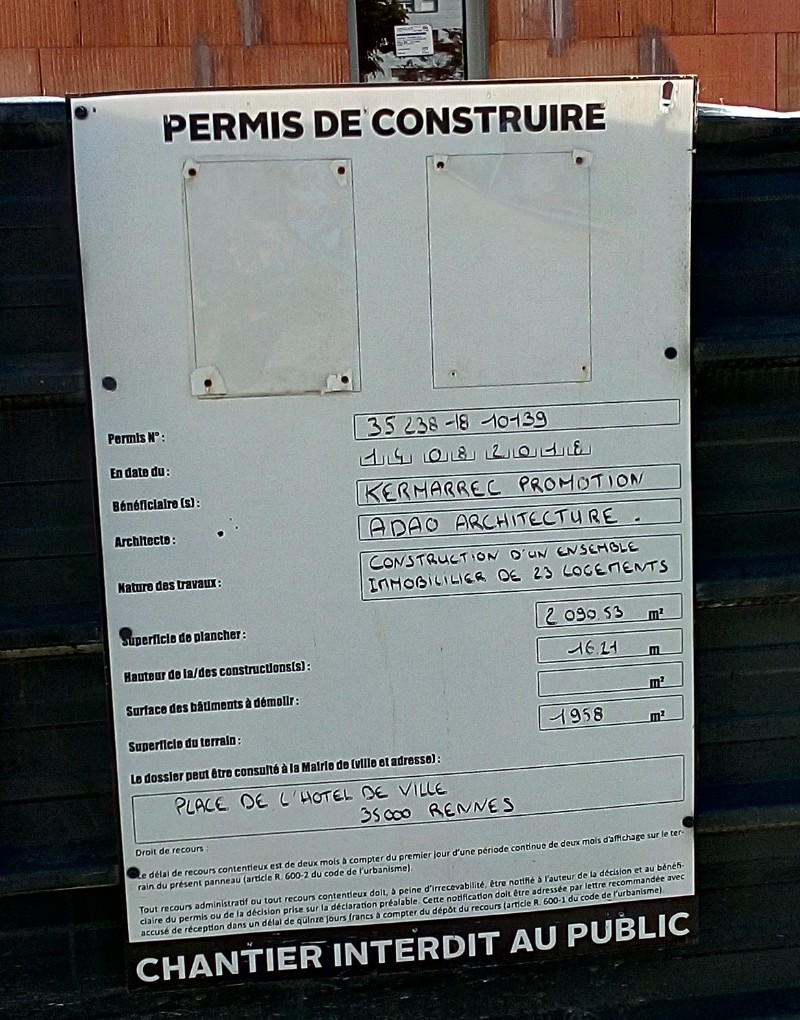 PERMIS DE CONSTRUIRE
Permis N° : 35 238-18 10139
En date du : 14 08 2018
Bénéficiaire (s) : KERMARREC PROMOTION
Architecte : ADAO ARCHITECTURE .
Nature des travaux : CONSTRUCTION D'UN ENSEMBLE
IMMOBILILIER DE 23 LOGEMENTS
Superficie de plancher : 2 090.53 m²
Hauteur de la/des constructions(s) : 16.21 m
Surface des bâtiments à démolir : m²
Superficie du terrain : 1958 m²
Le dossier peut être consulté à la Mairie de (ville et adresse) :
PLACE DE L'HOTEL DE VILLE
35000 RENNES
Droit de recours :
Le délai de recours contentieux est de deux mois à compter du premier jour d'une période continue de deux mois d'affichage sur le ter-
rain du présent panneau (article R. 600-2 du code de l'urbanisme).
Tout recours administratif ou tout recours contentieux doit, à peine d'irrecevabilité, être notifié à l'auteur de la décision et au bénéfi-
ciaire du permis ou de la décision prise sur la déclaration préalable. Cette notification doit être adressée par lettre recommandée avec
accusé de réception dans un délai de quinze jours francs à compter du dépôt du recours (article R. 600-1 du code de l'urbanisme).
CHANTIER INTERDIT AU PUBLIC